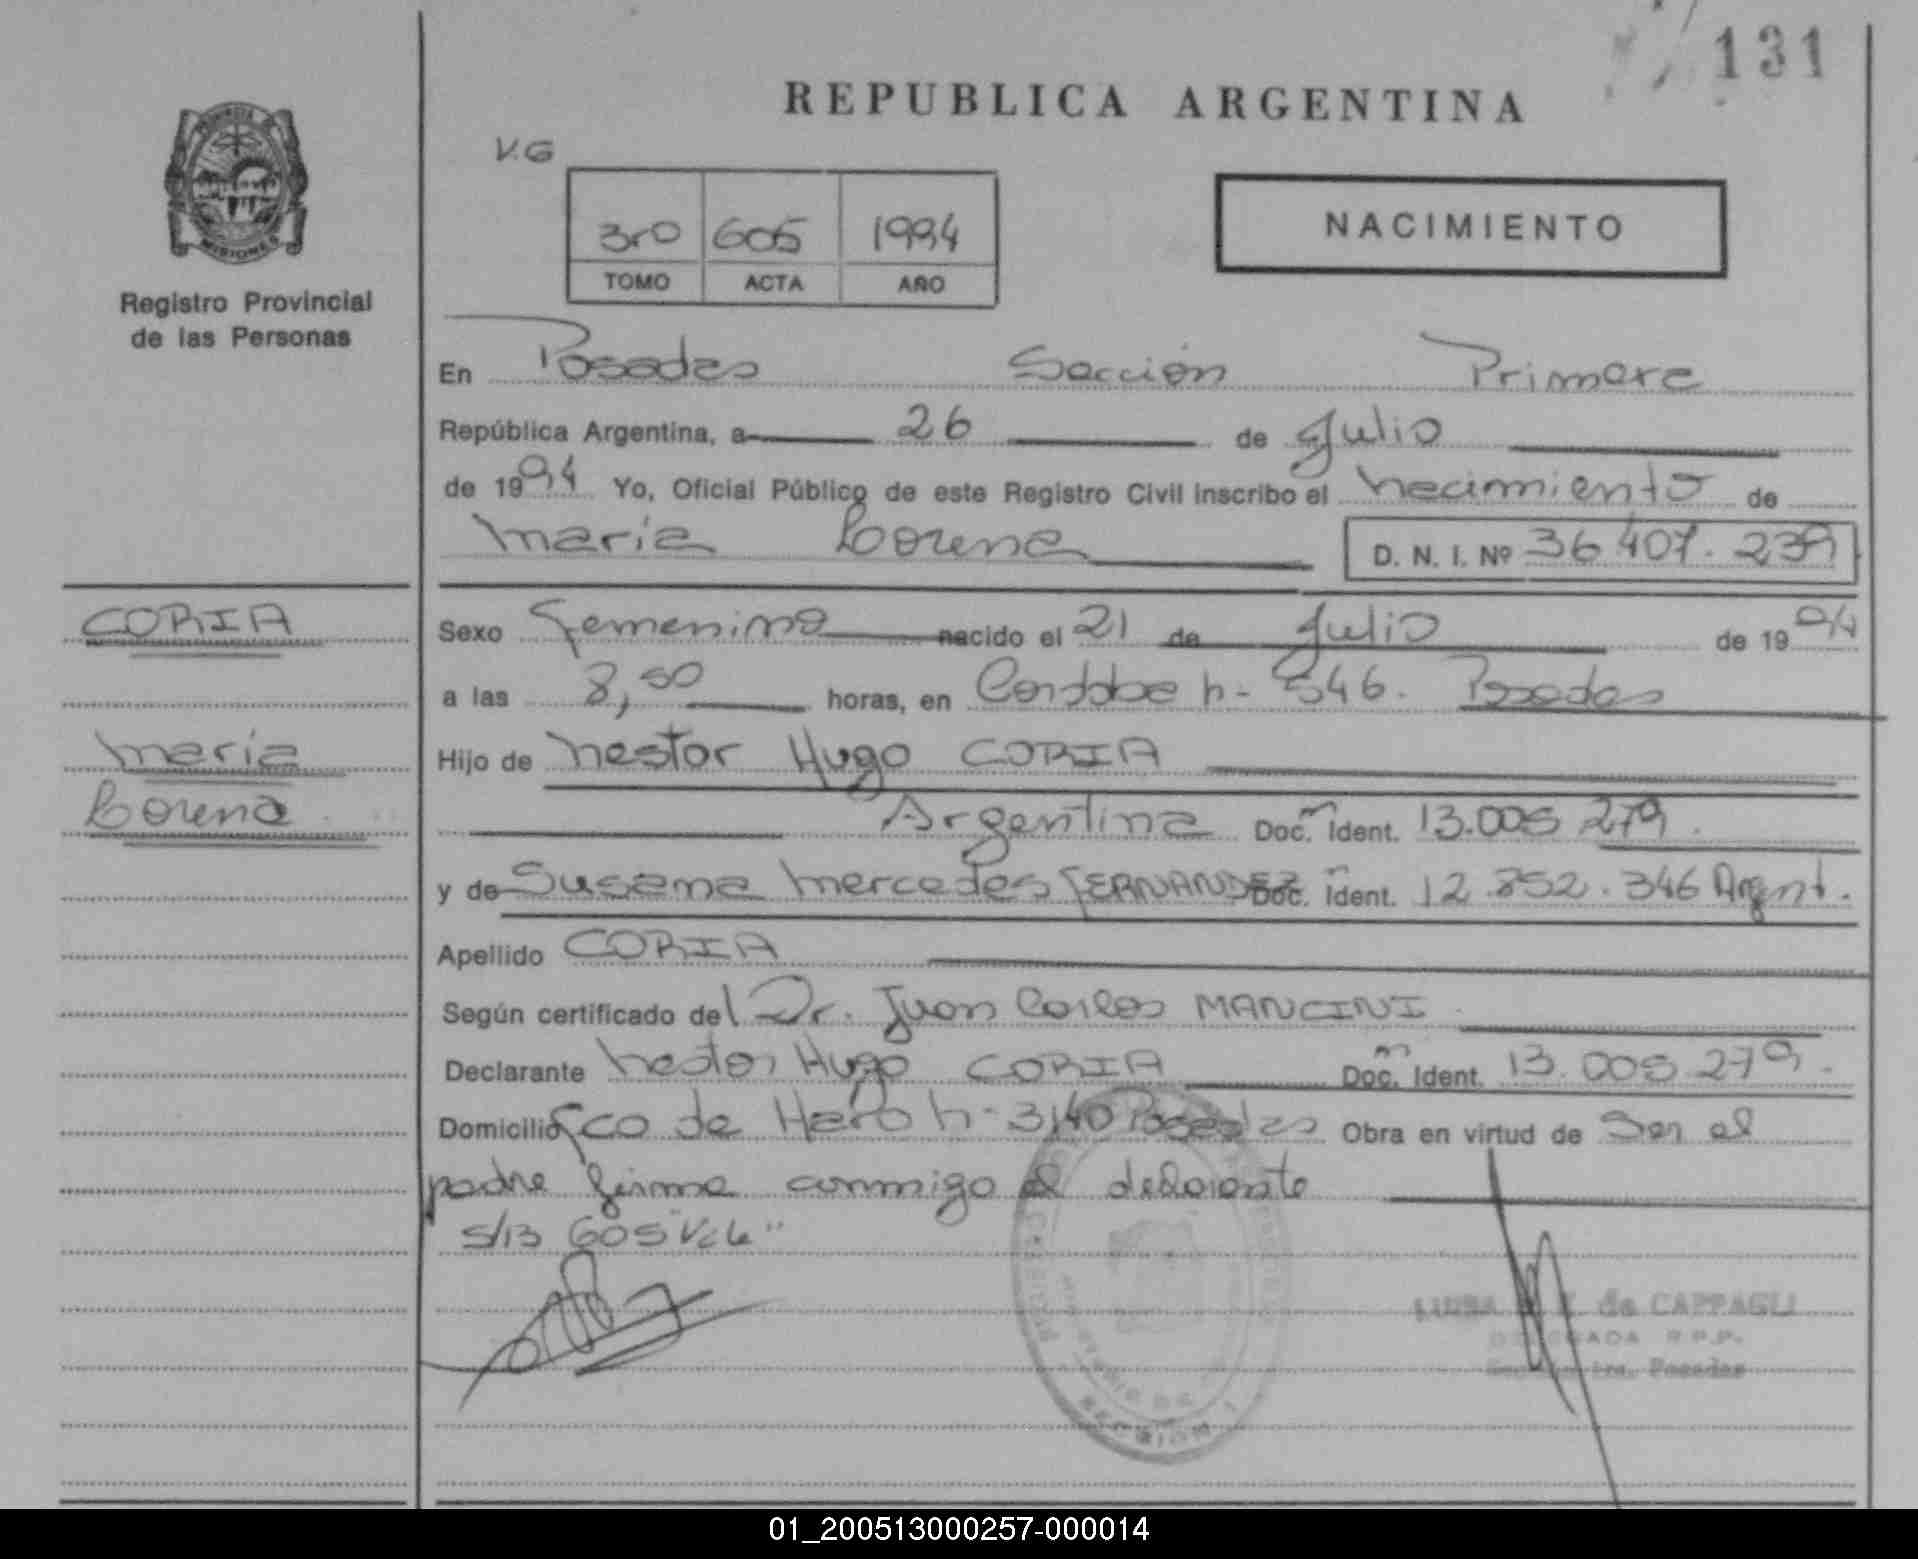 131
REPUBLICA ARGENTINA
V.G
3ro 605 1994
TOMO ACTA AÑO
NACIMIENTO
MISIONES
Registro Provincial
de las Personas
En Posadas Sección Primera
República Argentina, a 26 de Julio
de 1994 Yo, Oficial Público de este Registro Civil inscribo el nacimiento de
María Lorena D. N. I. Nº 36.407.239
CORIA
María
Lorena
Sexo femenino nacido el 21 de Julio de 1994
a las 8,50 horas, en Cordoba n- 546. Posadas
Hijo de Nestor Hugo CORIA
Argentina Doc. Ident. 13.005 279.
y de Susana Mercedes FERNANDEZ Doc. Ident. 12.852.346 Argent.
Apellido CORIA
Según certificado del Dr. Juan Carlos MANCINI
Declarante Nestor Hugo CORIA Doc. Ident. 13.005.279.
Domicilio Fco de Haro n- 3140 Posadas Obra en virtud de Ser el
padre firma conmigo el
S/B 605
de CAPPAGLI
DELEGADA R.P.P.
Posadas
SECCION 1
01_200513000257-000014